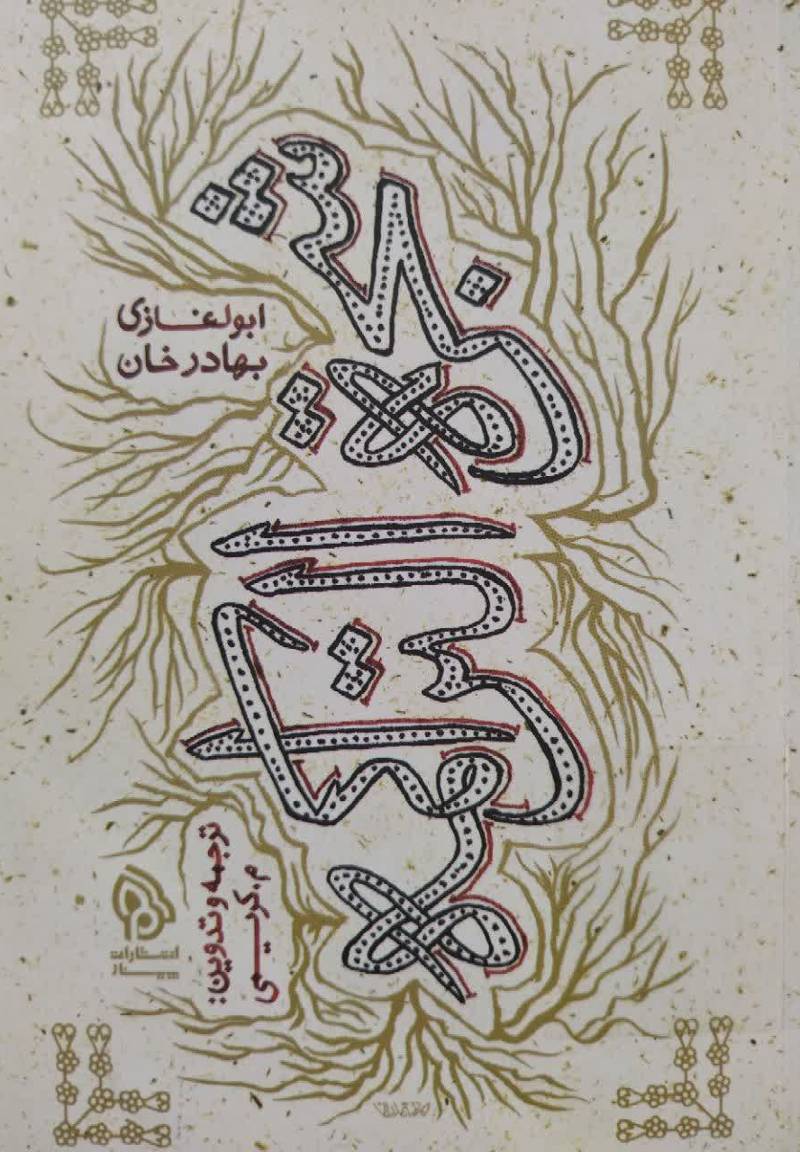 شجرة التراکمه
ابولغازی
بهادرخان
ترجمه و تدوین:
م.کریمی
انتشارات